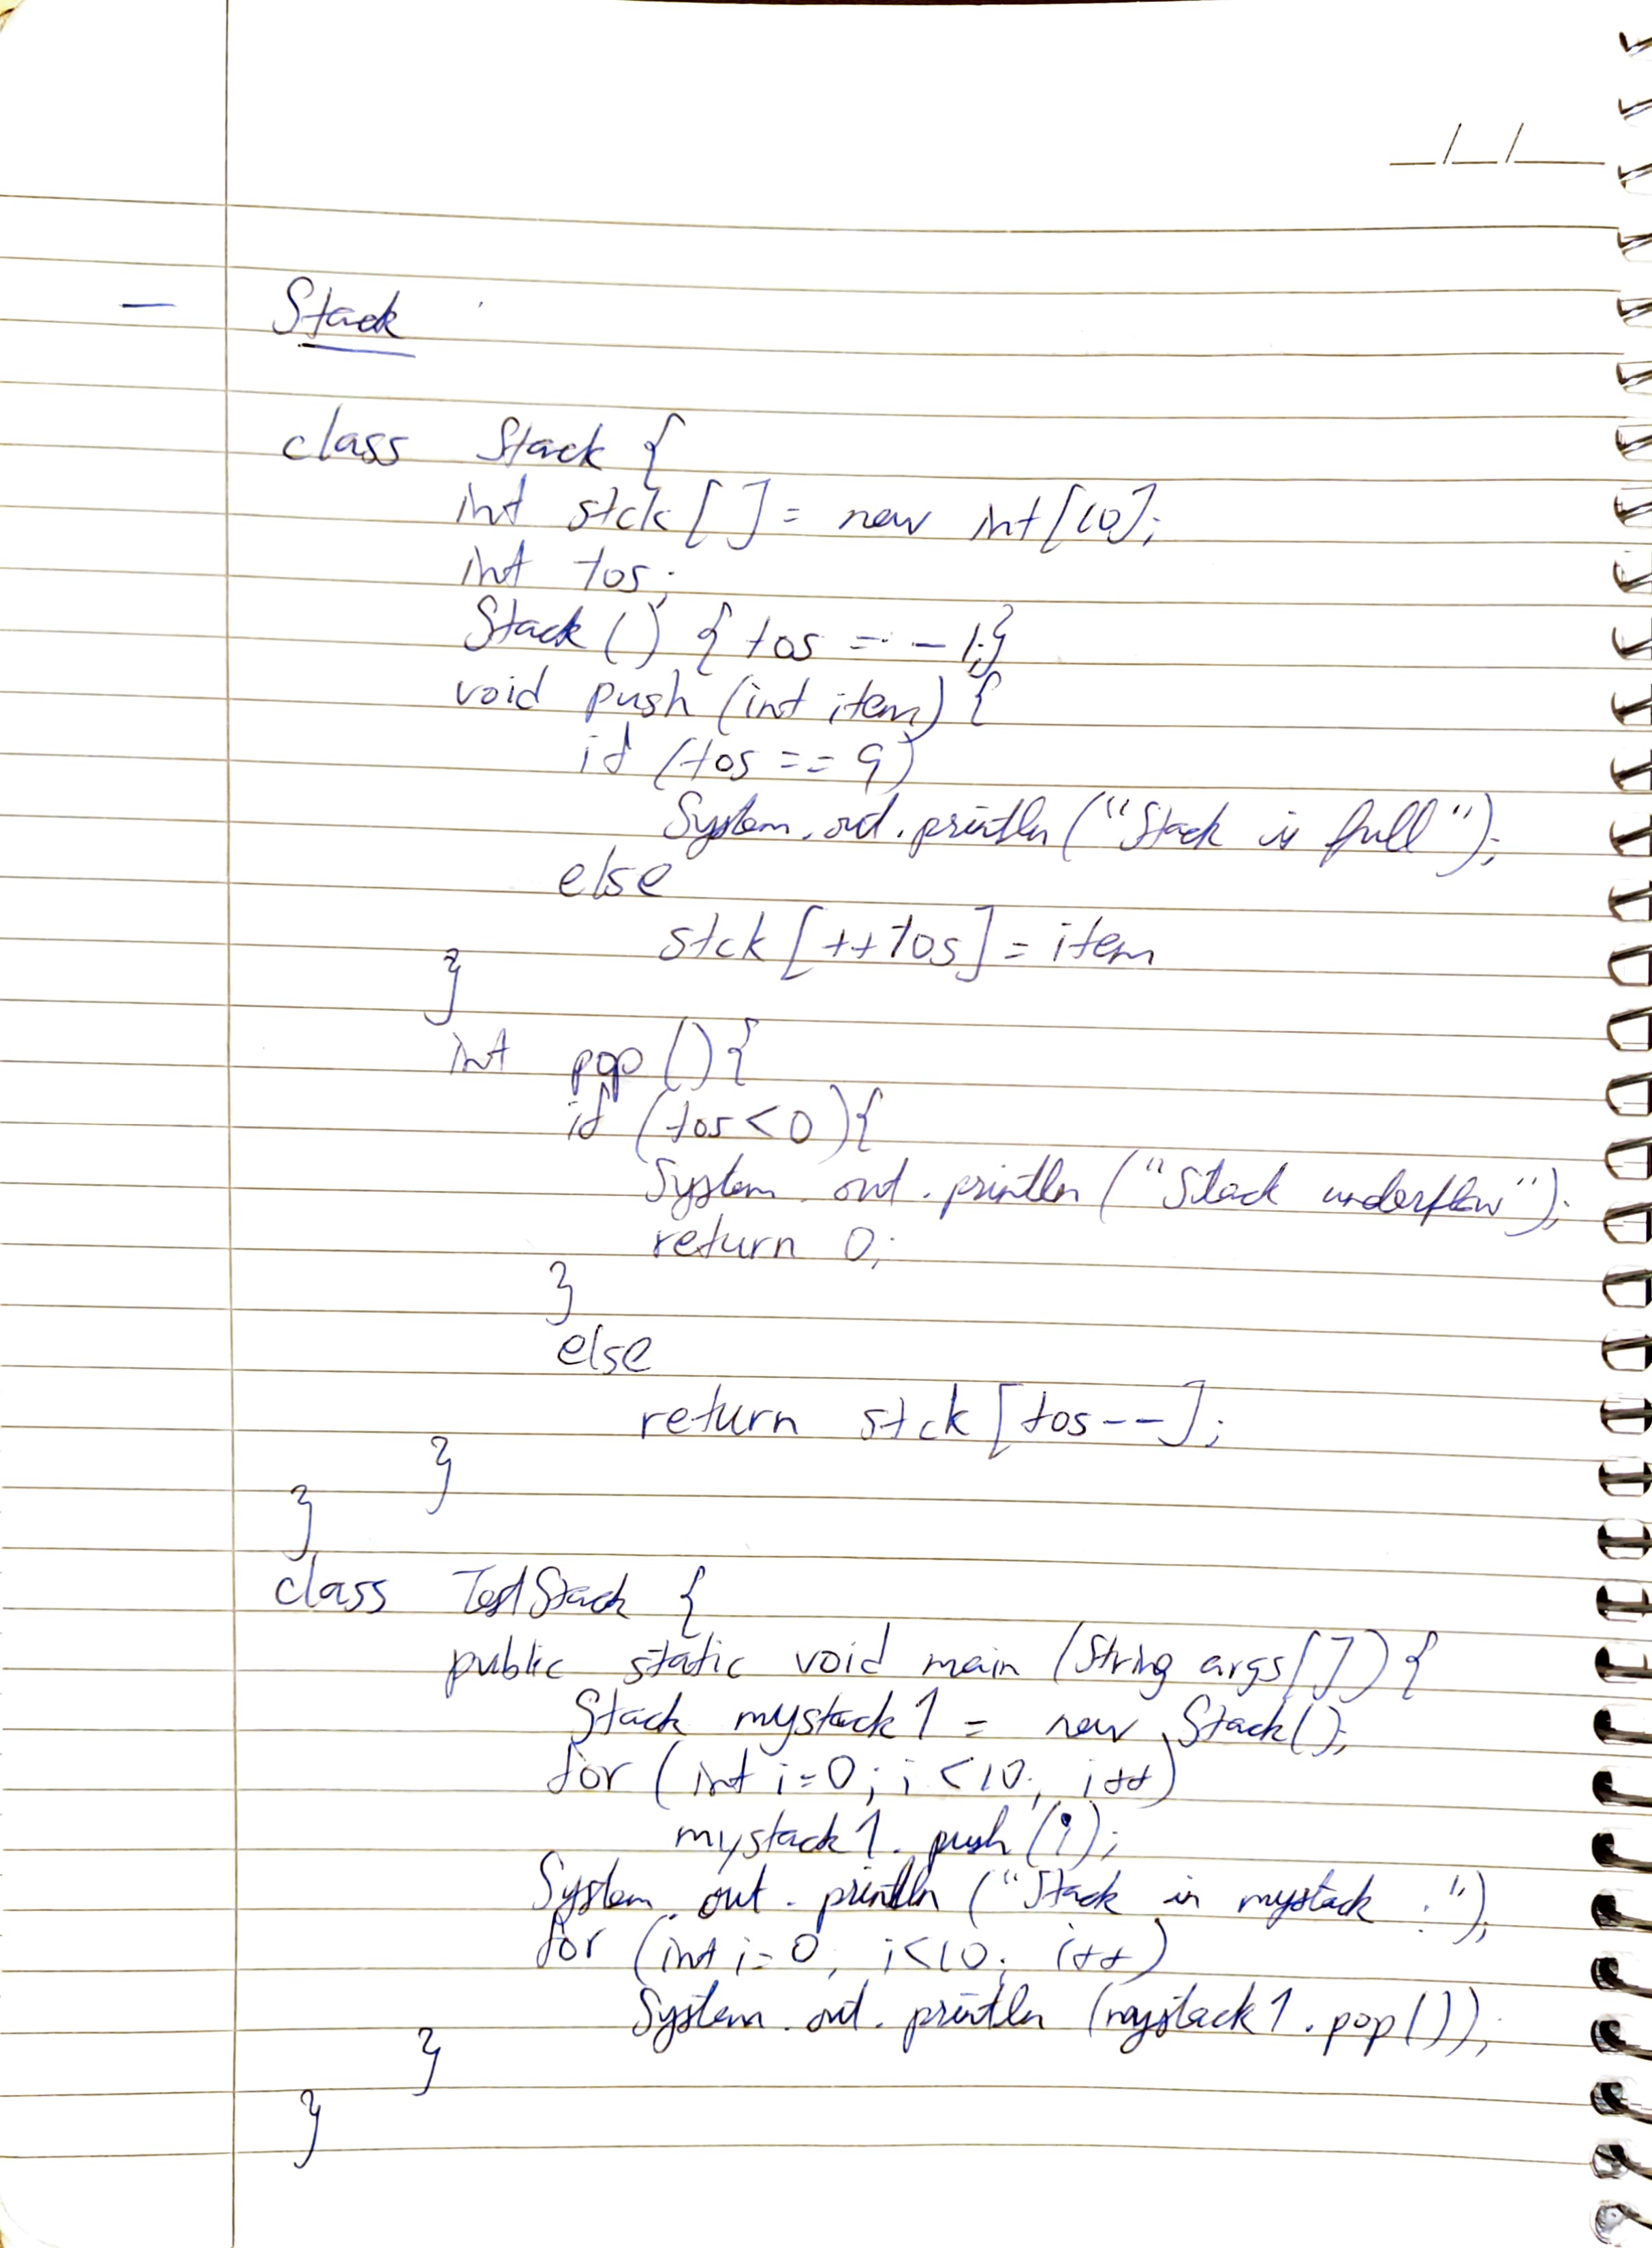 _/_/_
- Stack
class Stack {
int stck [ ] = new int [10];
int tos;
Stack () { tos = -1;}
void push (int item) {
if (tos == 9)
System.out.println ("Stack is full");
else
stck [++tos] = item
}
int pop () {
if (tos < 0) {
System.out.println ("Stack underflow");
return 0;
}
else
return stck [tos--];
}
}
class TestStack {
public static void main (String args[]) {
Stack mystack1 = new Stack();
for (int i=0; i<10; i++)
mystack1.push(i);
System.out.println ("Stack in mystack :");
for (int i=0; i<10; i++)
System.out.println (mystack1.pop());
}
}